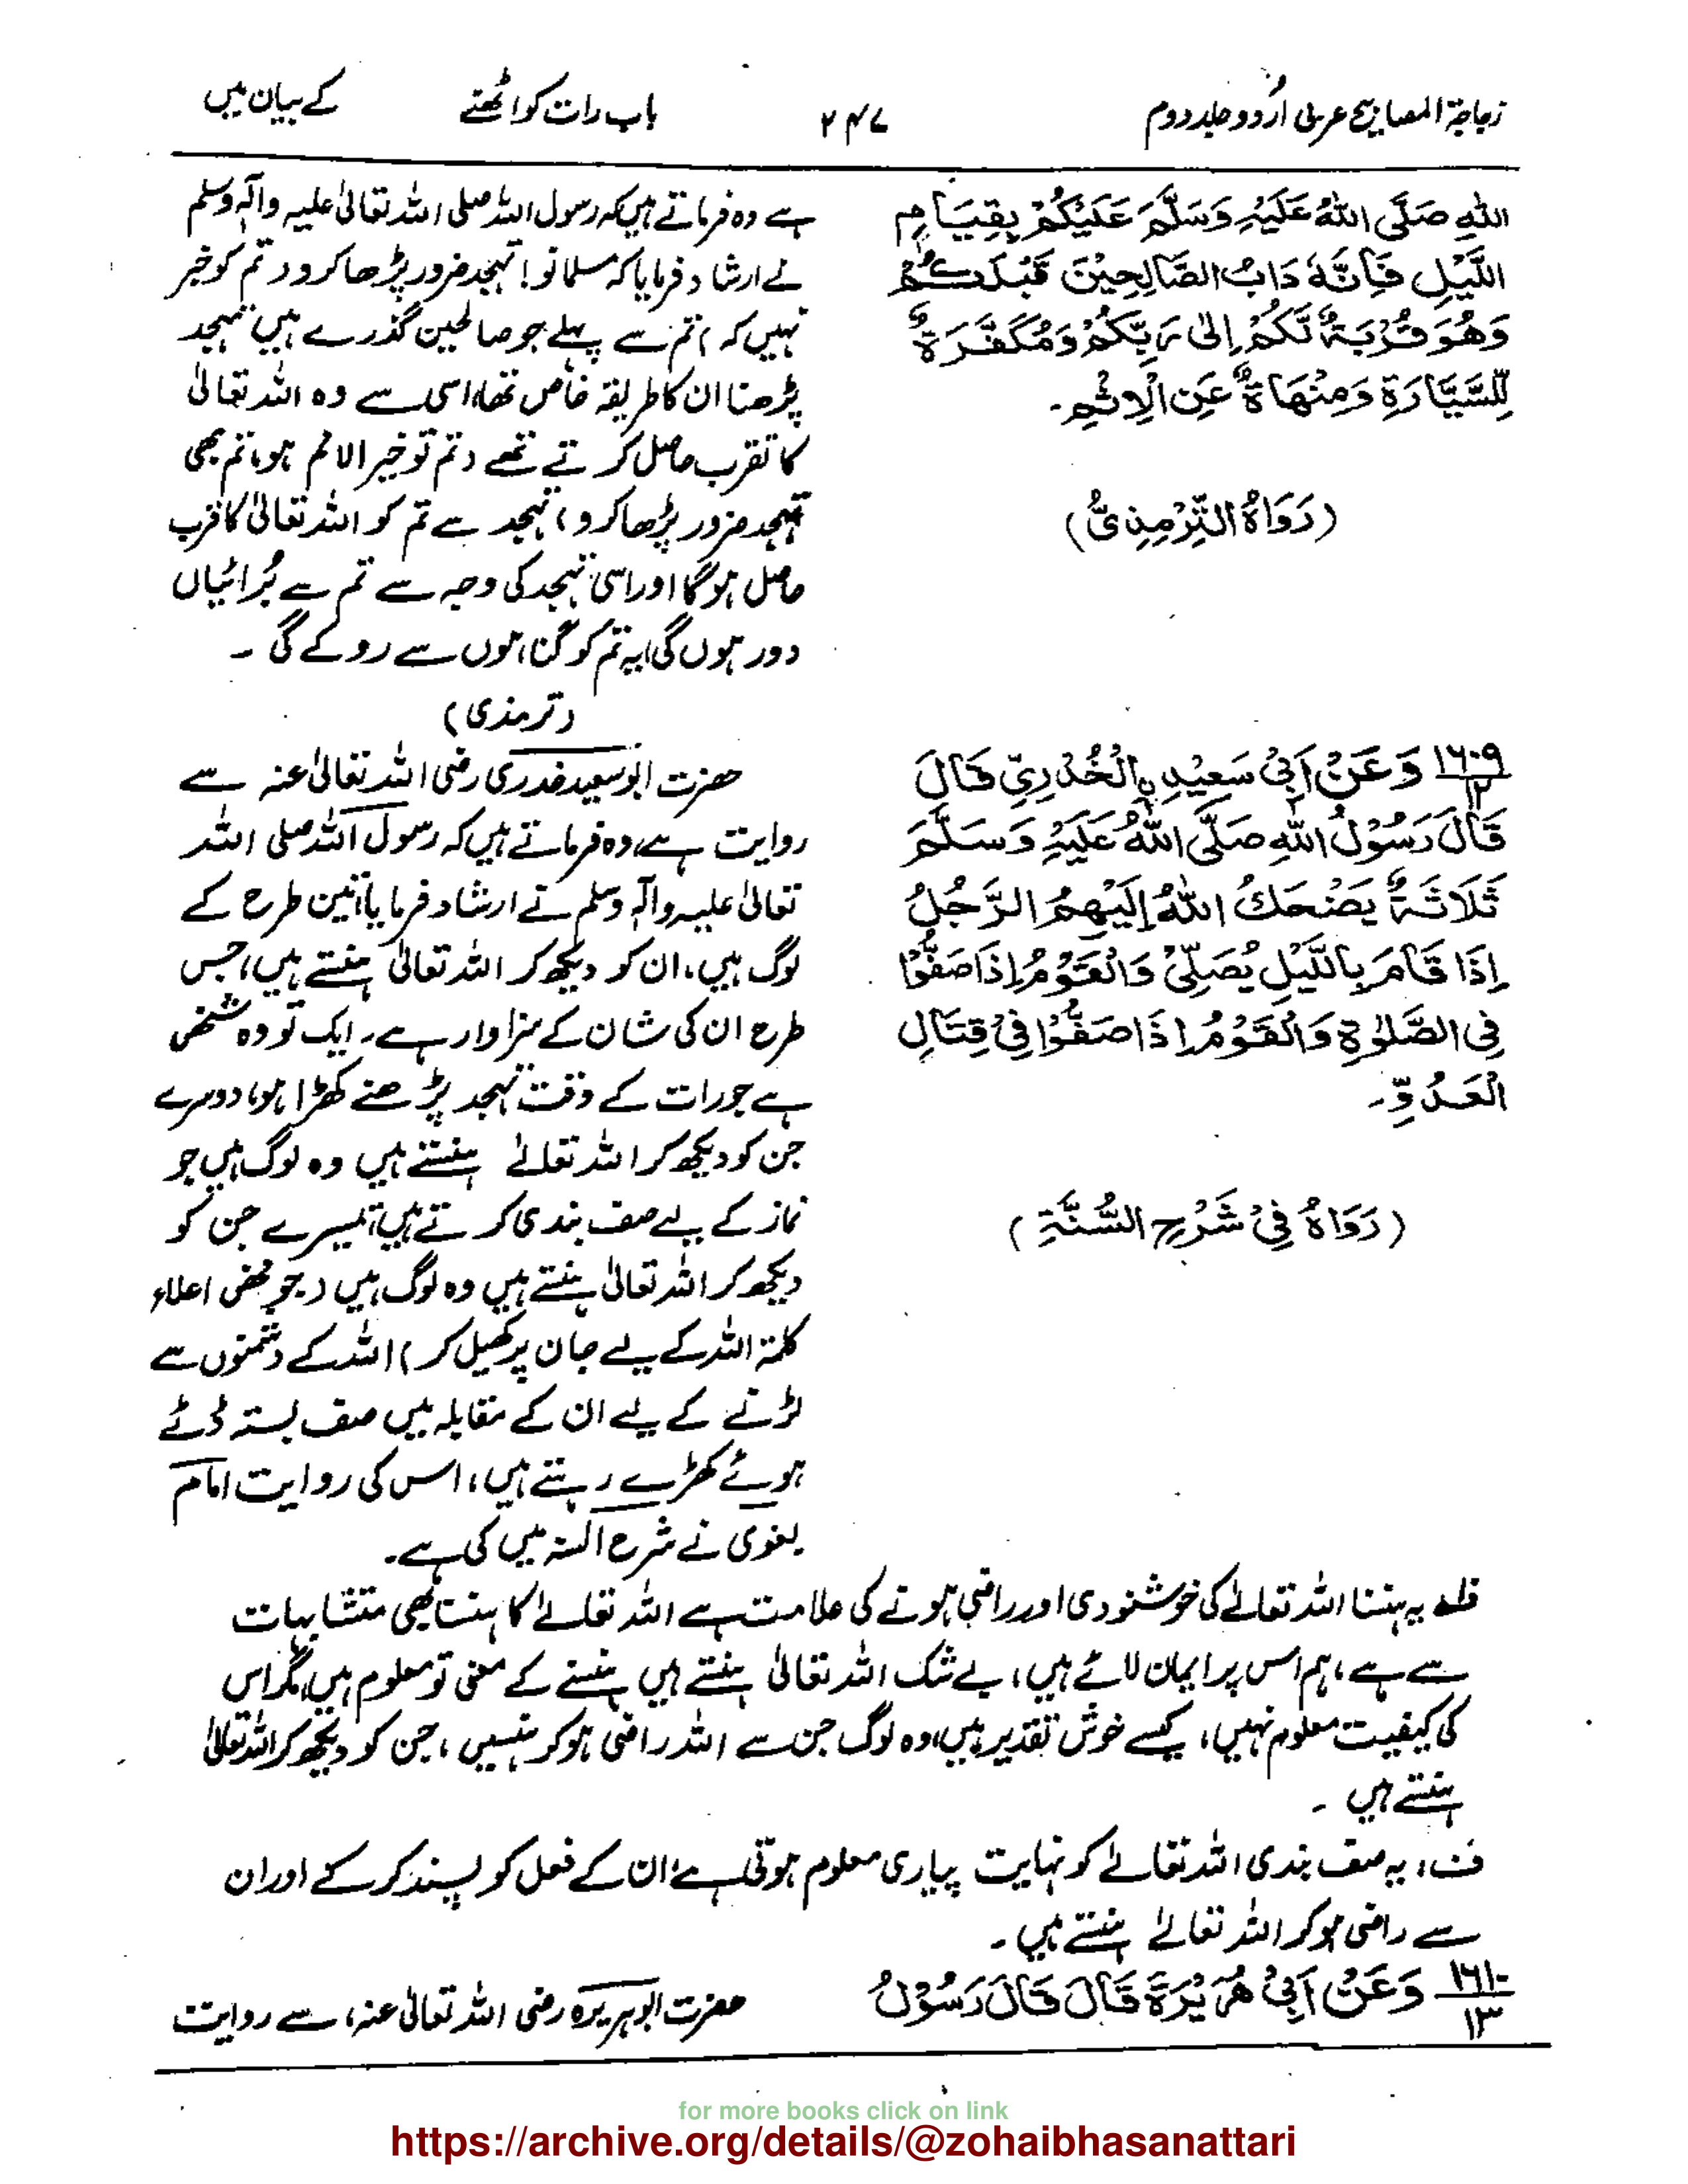 زجاجۃ المصابیح عربی اردو جلد دوم ۲۴۷ باب رات کو اٹھنے کے بیان میں
اللهِ صَلَّى اللهُ عَلَيْهِ وَسَلَّمَ عَلَيْكُمْ بِقِيَامِ
اللَّيْلِ فَإِنَّهُ دَابُ الصَّالِحِيْنَ قَبْلَكُمْ
وَهُوَ قُرْبَةٌ لَّكُمْ اِلٰى رَبِّكُمْ وَمُكَفَّرَةٌ
لِّلسَّيَّارَةِ وَمِنْهَاةٌ عَنِ الْاِثْمِ۔
(رَوَاهُ التِّرْمِذِىُّ)
ہے وہ فرماتے ہیں کہ رسول اللہ صلی اللہ تعالیٰ علیہ وآلہ وسلم
نے ارشاد فرمایا کہ مسلمانو! تہجد ضرور پڑھا کرو د تم کو خبر
نہیں کہ) تم سے پہلے جو صالحین گذرے ہیں تہجد
پڑھنا ان کا طریقہ خاص تھا، اسی سے وہ اللہ تعالیٰ
کا تقرب حاصل کرتے تھے (تم تو خیر الامم ہو، تم بھی
تہجد ضرور پڑھا کرو) تہجد سے تم کو اللہ تعالیٰ کا قرب
حاصل ہوگا اور اسی تہجد کی وجہ سے تم سے بُرائیاں
دور ہوں گی، یہ تم کو گناہوں سے روکے گی ۔
(ترمذی)
۱۶۰۹/۱۲ وَعَنْ اَبِىْ سَعِيْدِ ࣙالْخُدْرِىِّ قَالَ
قَالَ رَسُوْلُ اللهِ صَلَّى اللهُ عَلَيْهِ وَسَلَّمَ
ثَلَاثَةٌ يَضْحَكُ اللهُ اِلَيْهِمُ الرَّجُلُ
اِذَا قَامَ بِاللَّيْلِ يُصَلِّىْ وَالْقَوْمُ اِذَا صَفُّوْا
فِى الصَّلٰوةِ وَالْقَوْمُ اِذَا صَفُّوْا فِىْ قِتَالِ
الْعَدُوِّ۔
(رَوَاهُ فِىْ شَرْحِ السُّنَّةِ)
حضرت ابو سعید خدری رضی اللہ تعالیٰ عنہ سے
روایت ہے، وہ فرماتے ہیں کہ رسول اللہ صلی اللہ
تعالیٰ علیہ وآلہ وسلم نے ارشاد فرمایا، تین طرح کے
لوگ ہیں، ان کو دیکھ کر اللہ تعالیٰ ہنستے ہیں، جس
طرح ان کی شان کے سزاوار ہے۔ ایک تو وہ شخص
ہے جو رات کے وقت تہجد پڑھنے کھڑا ہو، دوسرے
جن کو دیکھ کر اللہ تعالےٰ ہنستے ہیں وہ لوگ ہیں جو
نماز کے لیے صف بندی کرتے ہیں، تیسرے جن کو
دیکھ کر اللہ تعالیٰ ہنستے ہیں وہ لوگ ہیں (جو محض اعلاء
کلمۃ اللہ کے لیے جان پر کھیل کر) اللہ کے دشمنوں سے
لڑنے کے لیے ان کے مقابلہ میں صف بستہ ڈٹے
ہوئے کھڑے رہتے ہیں، اس کی روایت امام
بغوی نے شرح السنۃ میں کی ہے۔
ف یہ ہنسنا اللہ تعالےٰ کی خوشنودی اور راضی ہونے کی علامت ہے اللہ تعالےٰ کا ہنسنا بھی متشابہات
سے ہے، ہم اس پر ایمان لائے ہیں، بے شک اللہ تعالیٰ ہنستے ہیں ہنسنے کے معنی تو معلوم ہیں، مگر اس
کی کیفیت معلوم نہیں، کیسے خوش تقدیر ہیں، وہ لوگ جن سے اللہ راضی ہو کر ہنسیں، جن کو دیکھ کر اللہ تعالیٰ
ہنستے ہیں ۔
ف، یہ صف بندی اللہ تعالےٰ کو نہایت پیاری معلوم ہوتی ہے ان کے فعل کو پسند کر کے اور ان
سے راضی ہو کر اللہ تعالےٰ ہنستے ہیں۔
۱۶۱۰/۱۳ وَعَنْ اَبِىْ هُرَيْرَةَ قَالَ قَالَ رَسُوْلُ
حضرت ابو ہریرہ رضی اللہ تعالیٰ عنہ، سے روایت
for more books click on link
https://archive.org/details/@zohaibhasanattari